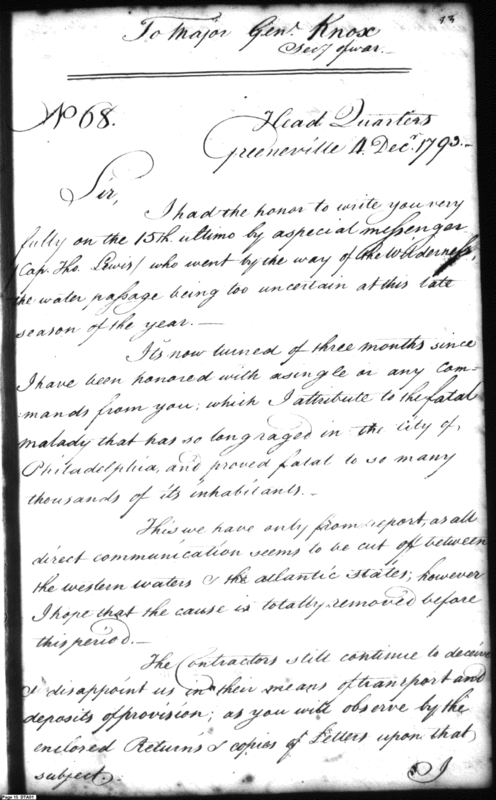 93
To Major Genl. Knox
Secy of war.
No 68.
Head Quarters
Greeneville 4 Decr. 1793.
Sir,
I had the honor to write you very
fully on the 15th. ultimo by a special messenger
(Cap: Tho. Lewis) who went by the way of the Wilderness,
the water passage being too uncertain at this late
season of the year.—
It's now turned of three months since
I have been honored with a single or any com-
mands from you; which I attribute to the fatal
malady that has so long raged in the city of
Philadelphia, and proved fatal to so many
thousands of its inhabitants.—
This we have only from report, as all
direct communication seems to be cut off between
the western waters & the atlantic states; however
I hope that the cause is totally removed before
this period.—
The Contractors still continue to deceive
& disappoint us in their means of transport and
deposits of provision; as you will observe by the
enclosed Returns & copies of Letters upon that
subject.
I